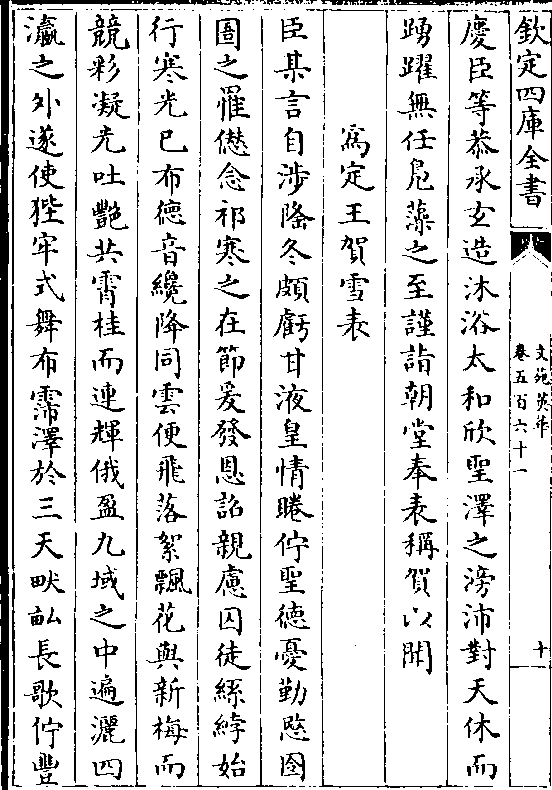 欽定四庫全書
文苑英華
卷五百六十一
十
慶臣等恭承玄造沐浴太和欣聖澤之滂沛對天休而
踴躍無任鳧藻之至謹詣朝堂奉表稱賀以聞
爲定王賀雪表
臣某言自涉隆冬頗虧甘液皇情睠佇聖德憂勤愍囹
圄之罹僽念祁寒之在節爰發恩詔親慮囚徒絲綍始
行寒光已布德音纔降同雲便飛落絮飄花與新梅而
競彩凝光吐艷共霄桂而連輝俄盈九域之中遍灑四
瀛之外遂使狴牢式舞布霈澤於三天畎畝長歌佇豐